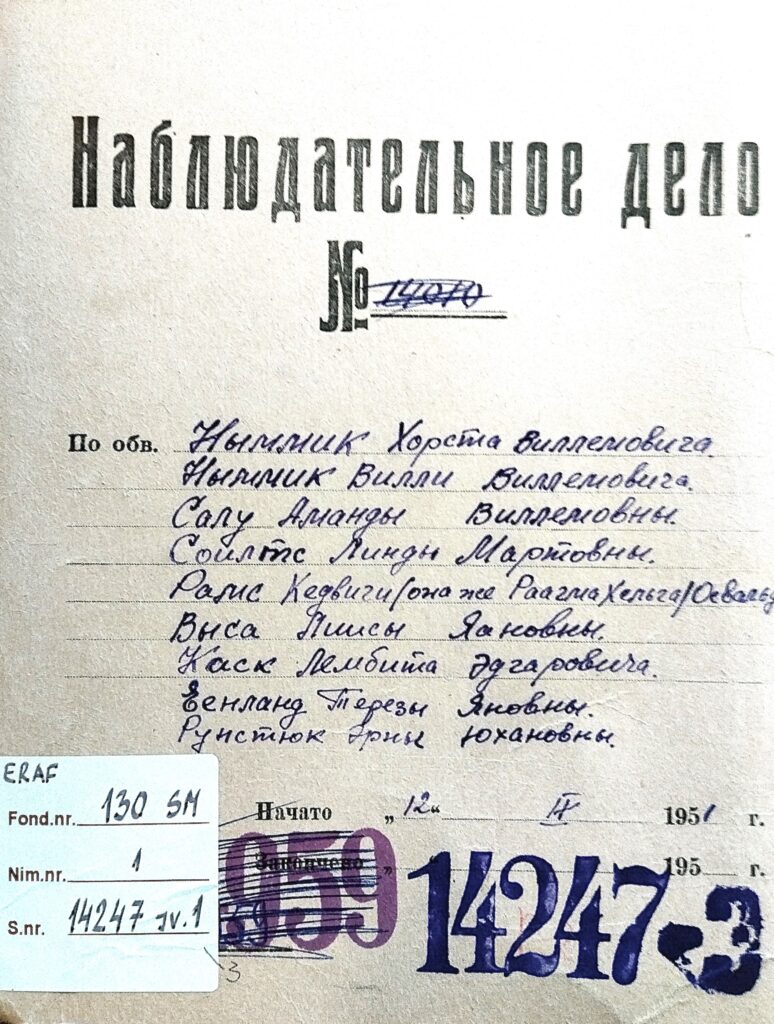 Наблюдательное дело
№ 14010
По обв. Ныммик Хорста Виллемовича.
Ныммик Вилли Виллемовича.
Салу Аманды Виллемовны.
Соилтс Линды Мартовны.
Рамс Хедвиги (она же Раагма Хельга) Освальд
Выса Лиисы Яановны.
Каск Лембита Эдгаровича.
Еенланд Терезы Яновны.
Рунстюк Эрны Юхановны.
ERAF
Fond.nr. 130 SM
Nim.nr. 1
S.nr. 14247 sv.1
Начато „12“ IX 1951 г.
Закончено „ 195 г.
959
14247-3
3